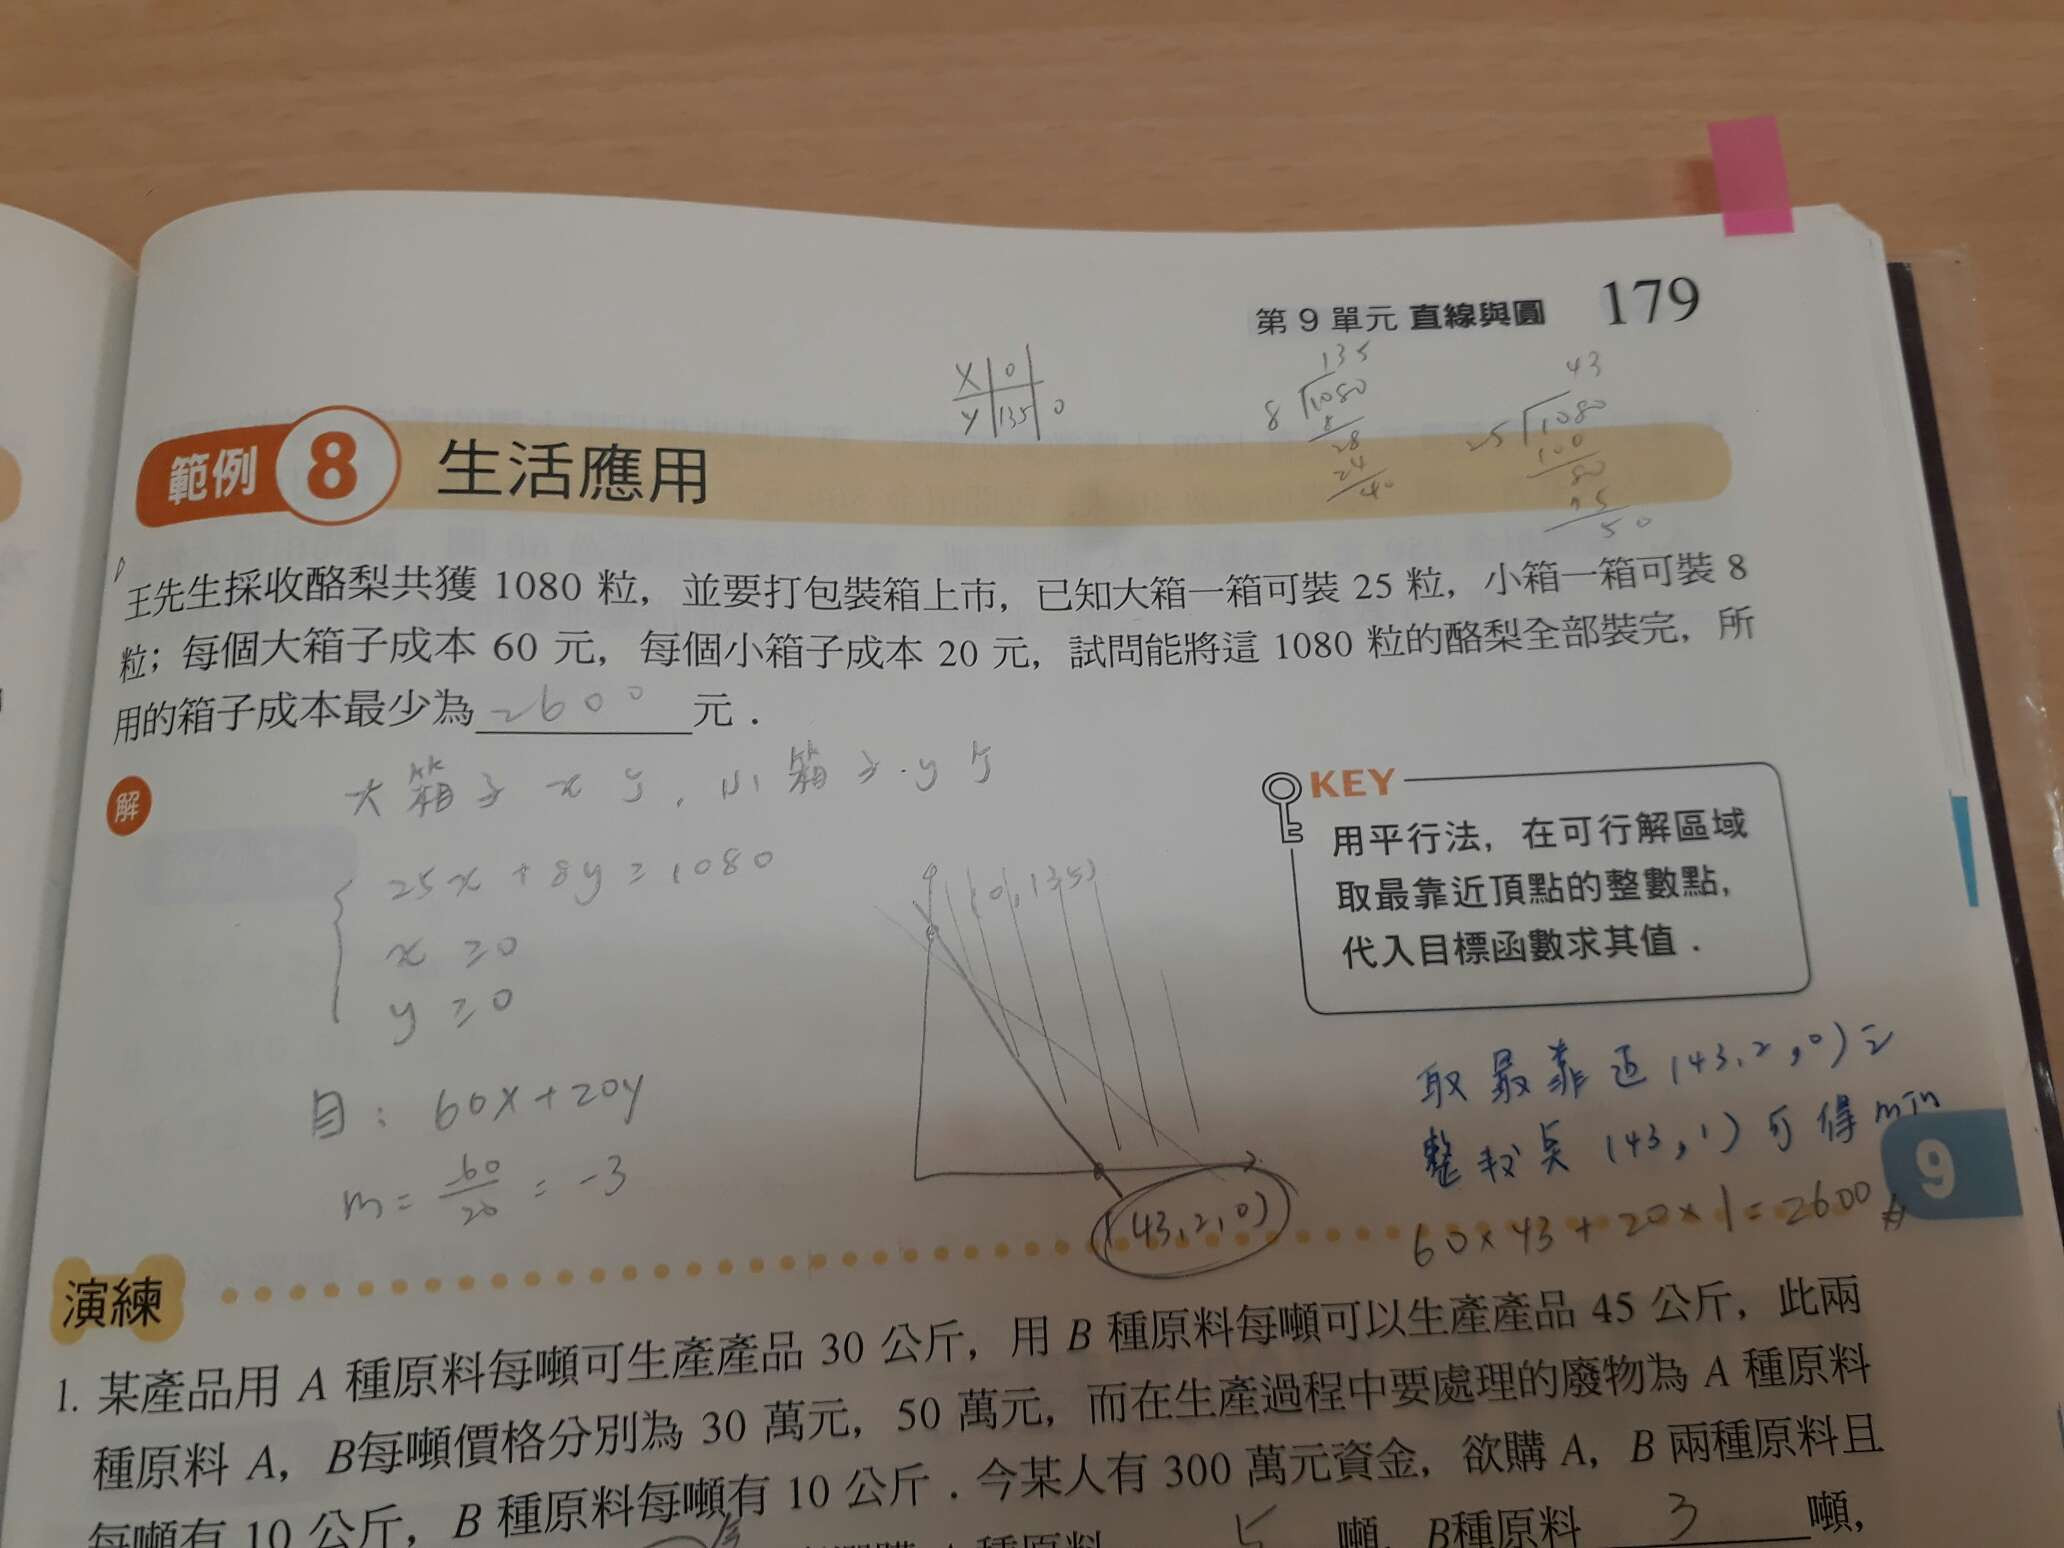 第 9 單元 直線與圓 179
x 0
y 135 0
135
8 1080
8
28
24
40
43
25 1080
100
80
75
50
範例 8 生活應用
王先生採收酪梨共獲 1080 粒，並要打包裝箱上市，已知大箱一箱可裝 25 粒，小箱一箱可裝 8
粒；每個大箱子成本 60 元，每個小箱子成本 20 元，試問能將這 1080 粒的酪梨全部裝完，所
用的箱子成本最少為 2600 元．
解
大箱子 x 个，小箱子 y 个
25x + 8y ≥ 1080
x ≥ 0
y ≥ 0
目： 60x + 20y
m = 60/20 = -3
(0, 135)
(43.2, 0)
KEY
用平行法，在可行解區域
取最靠近頂點的整數點，
代入目標函數求其值．
取最靠近 (43.2, 0) 之
整数点 (43, 1) 可得 min
60 × 43 + 20 × 1 = 2600 #
9
演練
1. 某產品用 A 種原料每噸可生產產品 30 公斤，用 B 種原料每噸可以生產產品 45 公斤，此兩
種原料 A，B每噸價格分別為 30 萬元，50 萬元，而在生產過程中要處理的廢物為 A 種原料
每噸有 10 公斤，B 種原料每噸有 10 公斤．今某人有 300 萬元資金，欲購 A，B 兩種原料且
A 種原料 5 噸，B種原料 3 噸，